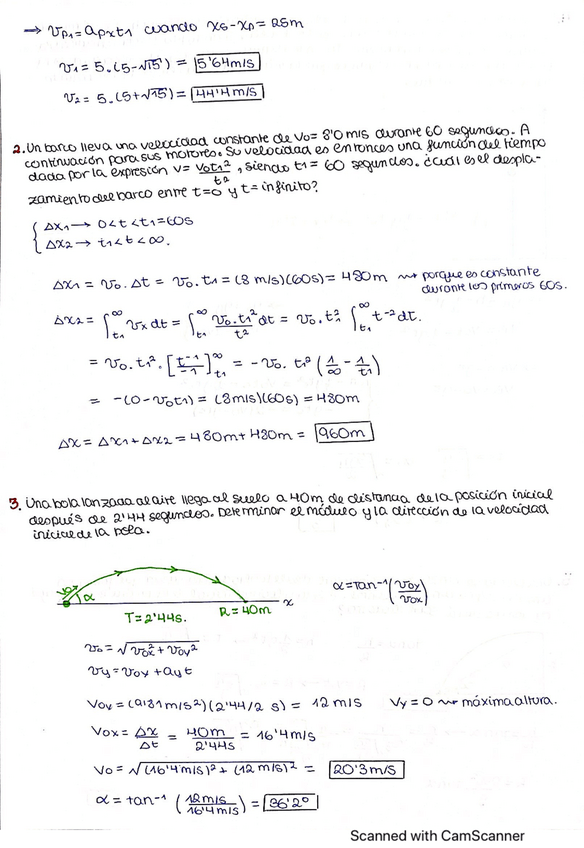 → Vp₁ = apx t₁ cuando xs - xp = 25m
v₁ = 5.(5-√15) = 5'64m/s
v₂ = 5.(5+√15) = 44'4m/s
2. Un barco lleva una velocidad constante de v₀ = 8'0 m/s durante 60 segundos. A
continuación para sus motores. Su velocidad es entonces una función del tiempo
dada por la expresión v = v₀t₁²/t², siendo t₁ = 60 segundos. ¿cuál es el despla-
zamiento del barco entre t=0 y t=infinito?
Δx₁ → 0<t<t₁=60s
Δx₂ → t₁<t<∞.
Δx₁ = v₀.Δt = v₀.t₁ = (8 m/s)(60s) = 480m ⇝ porque es constante
durante los primeros 60s.
Δx₂ = ∫t₁^∞ vx dt = ∫t₁^∞ v₀.t₁²/t² dt = v₀.t₁² ∫t₁^∞ t⁻² dt.
= v₀.t₁².[t⁻¹/-1]t₁^∞ = -v₀.t₁²(1/∞ - 1/t₁)
= -(0-v₀t₁) = (8m/s)(60s) = 480m
Δx = Δx₁ + Δx₂ = 480m + 480m = 960m
3. Una bola lanzada al aire llega al suelo a 40m de distancia de la posición inicial
después de 2'44 segundos. Determinar el módulo y la dirección de la velocidad
inicial de la bola.
α = tan⁻¹(v₀y/v₀x)
v₀ α x
T=2'44s. R=40m
v₀ = √v₀x² + v₀y²
vy = v₀y + ay t
v₀y = (9'81 m/s²)(2'44/2 s) = 12 m/s Vy = 0 ⇝ máxima altura.
v₀x = Δx/Δt = 40m/2'44s = 16'4m/s
v₀ = √(16'4m/s)² + (12m/s)² = 20'3m/s
α = tan⁻¹(12m/s/16'4m/s) = 36'2º
Scanned with CamScanner